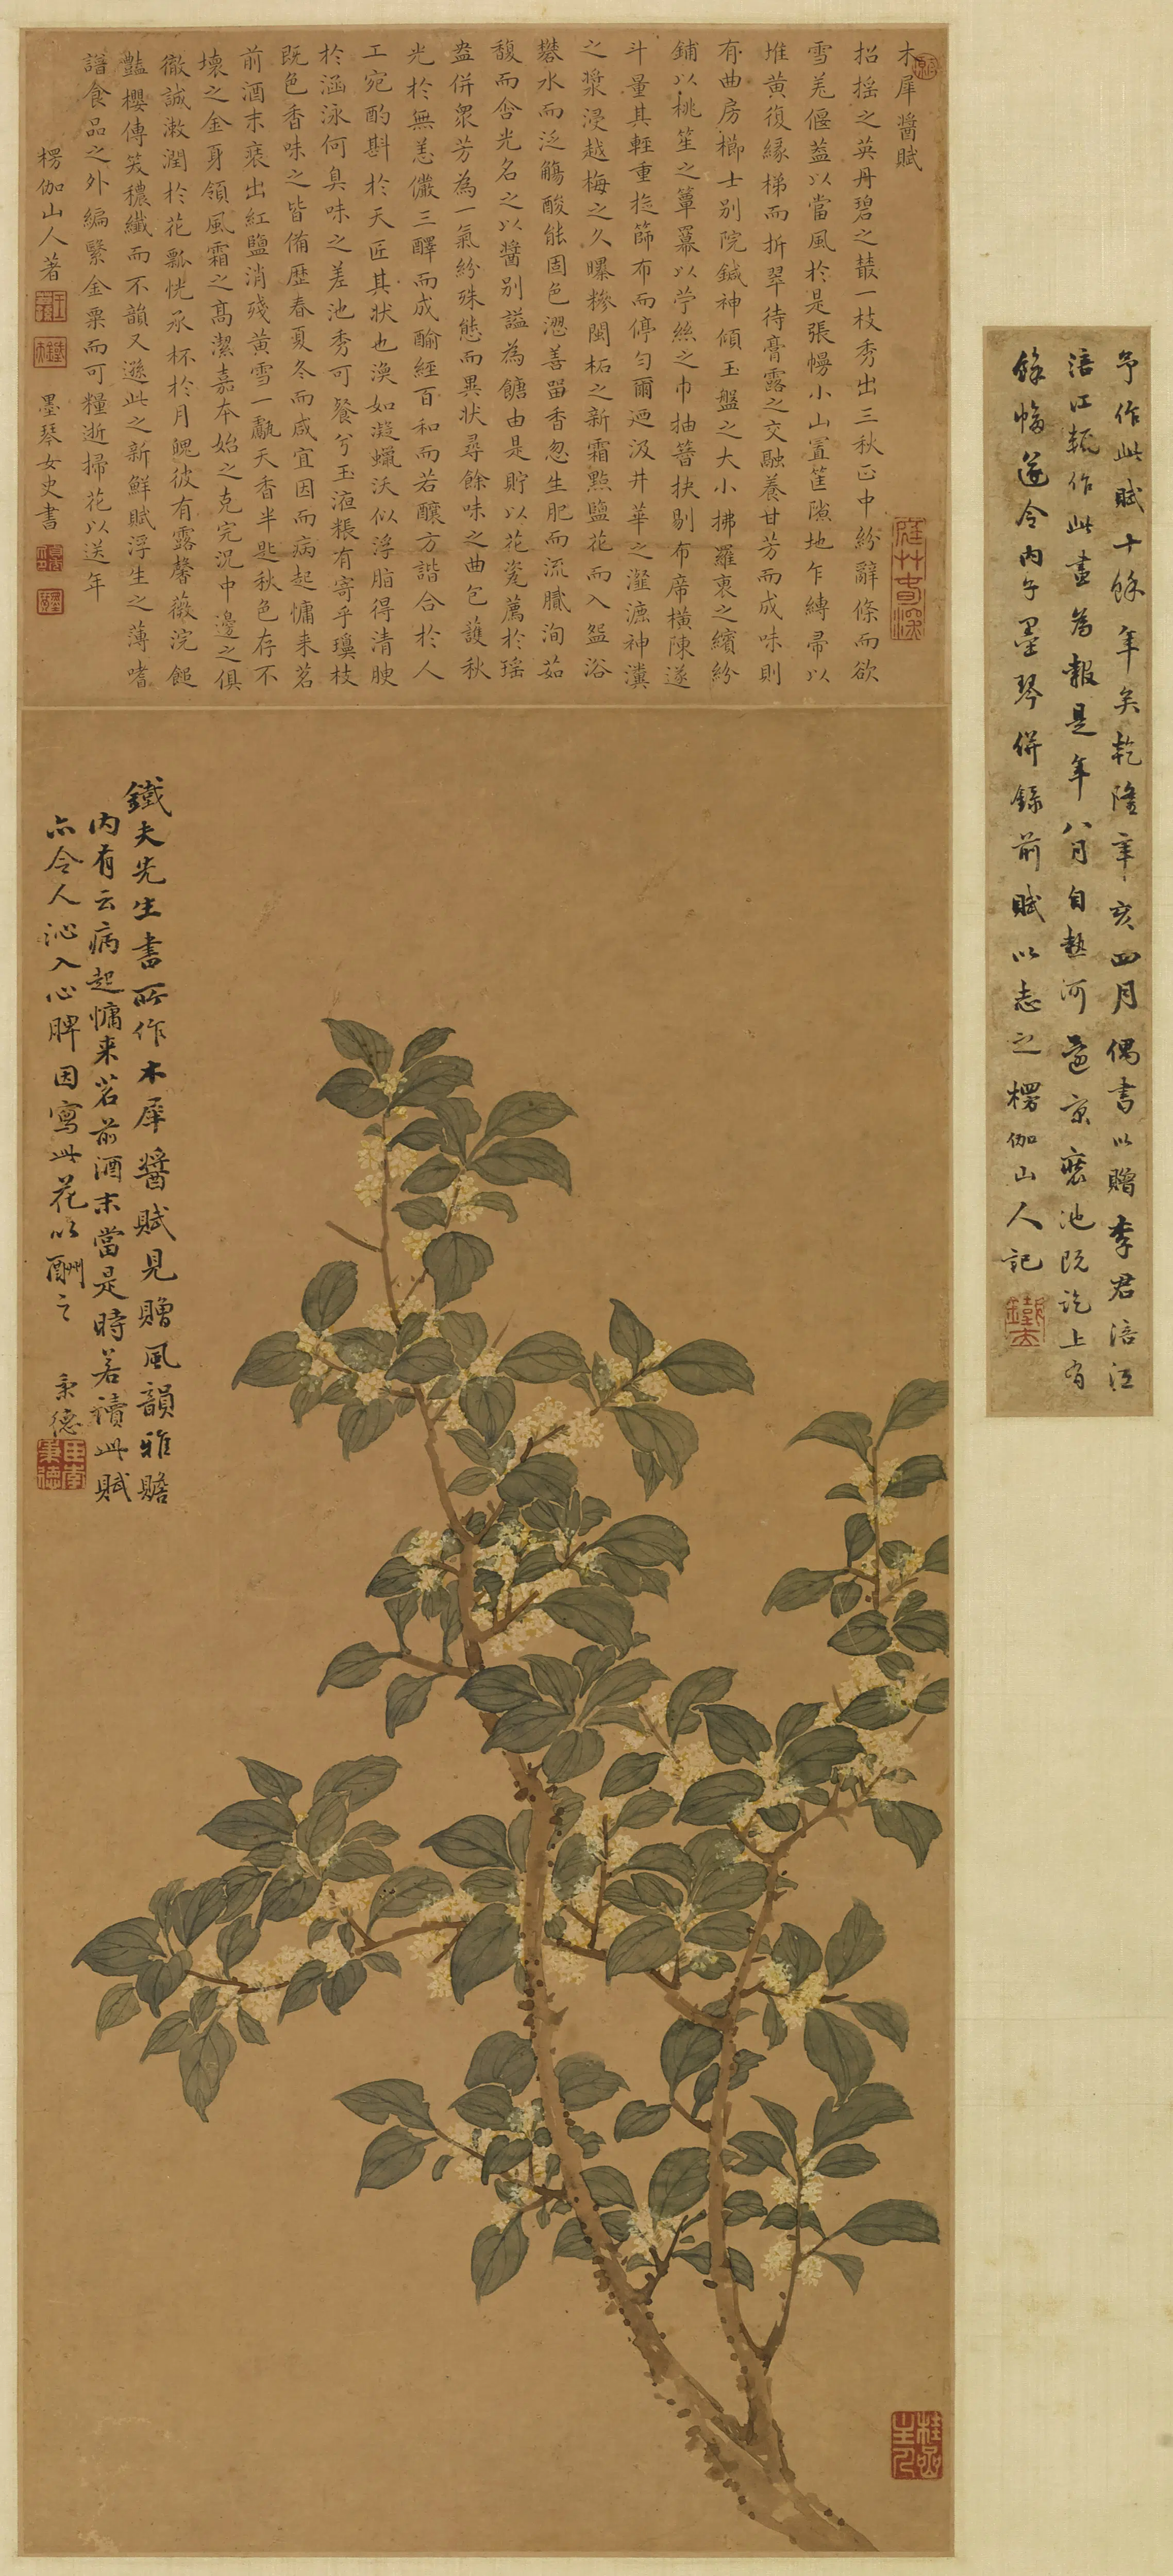 木犀醬賦
招搖之英丹碧之叢一枝秀出三秋正中紛辭條而欲
雪羌偃蓋以當風於是張幔小山置筐隙地乍縛帚以
堆黃復緣梯而折翠待膏露之交融養甘芳而成味則
有曲房櫛士別院鍼神傾玉盤之大小拂羅裛之繽紛
鋪以桃笙之簟羃以苧絲之巾抽簪抉剔布席橫陳遂
斗量其輕重旋篩布而停勻爾迺汲井華之瀣漉神瀵
之漿浸越梅之久曝糝閩柘之新霜點鹽花而入盌浴
礬水而泛觴酸能固色澀善留香忽生肥而流膩洵茹
馥而含光名之以醬別謚為餹由是貯以花瓷薦於瑤
盎併眾芳為一氣紛殊態而異狀尋餘味之曲包護秋
光於無恙儼三醳而成酳經百和而若釀方諧合於人
工宛酌斟於天匠其狀也渙如凝蠟沃似浮脂得清腴
於涵泳何臭味之差池秀可餐兮玉液粻有寄乎瓊枝
既色香味之皆備歷春夏冬而咸宜因而病起慵來茗
前酒末裹出紅鹽消殘黃雪一甌天香半匙秋色存不
壞之金身領風霜之高潔嘉本始之克完況中邊之俱
徹誠漱潤於花瓢恍承杯於月魄彼有露馨薇浣餽
豔櫻傳笑穠纖而不韻又遜此之新鮮賦浮生之薄嗜
譜食品之外編緊金粟而可糧逝掃花以送年
楞伽山人著 墨琴女史書
鐵夫先生書所作木犀醬賦見贈風韻雅贍
內有云病起慵來茗前酒末當是時若讀此賦
亦令人沁入心脾因寫此花以酬之
秉德
予作此賦十餘年矣乾隆辛亥四月偶書以贈李君涪江
涪江輒作此畫為報是年八月自熱河還京裝池既訖上有
餘幅遂令內子墨琴併錄前賦以志之楞伽山人記
鐵夫
臣李秉德